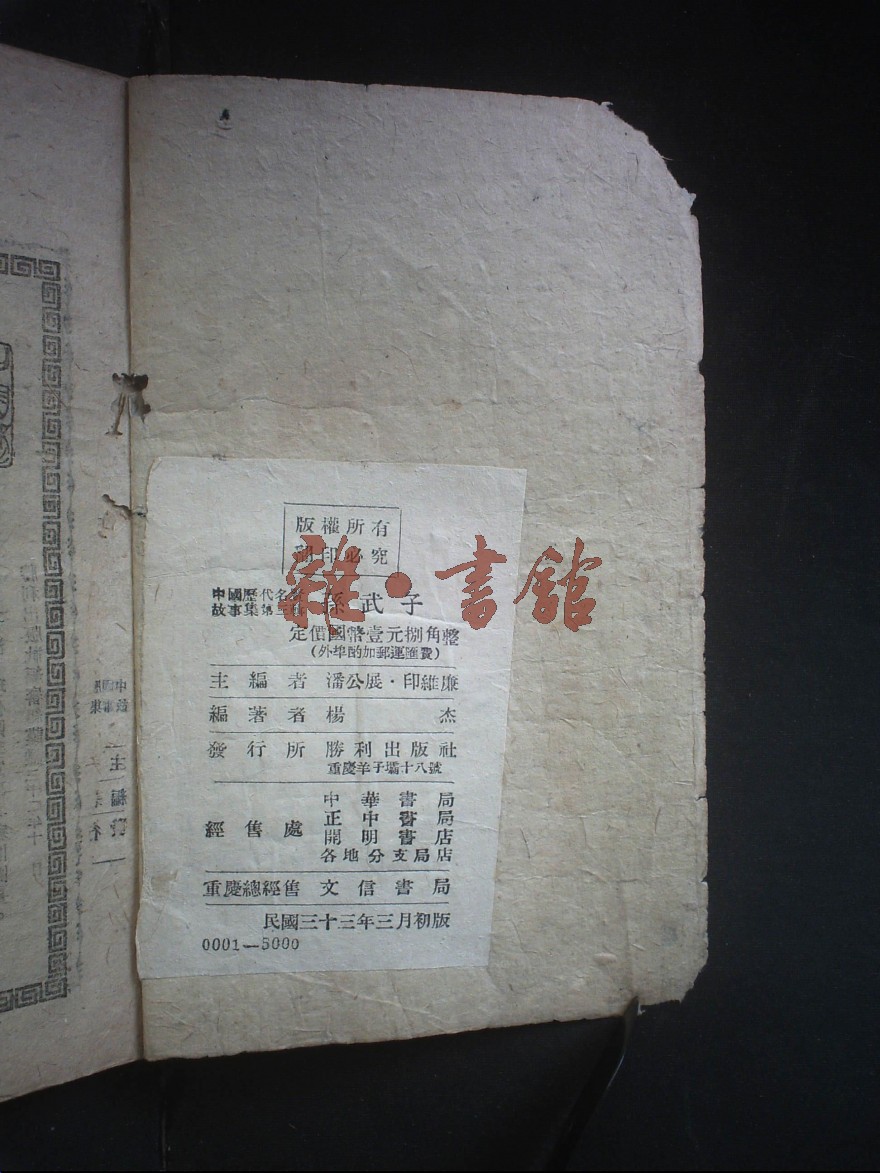 版權所有
翻印必究
中國歷代名賢
故事集第三輯
孫武子
定價國幣壹元捌角整
(外埠酌加郵運匯費)
主編者 潘公展·印維廉
編著者 楊杰
發行所 勝利出版社
重慶羊子壩十八號
經售處
中華書局
正中書局
開明書店
各地分支局店
重慶總經售 文信書局
民國三十三年三月初版
0001—5000
雜·書館